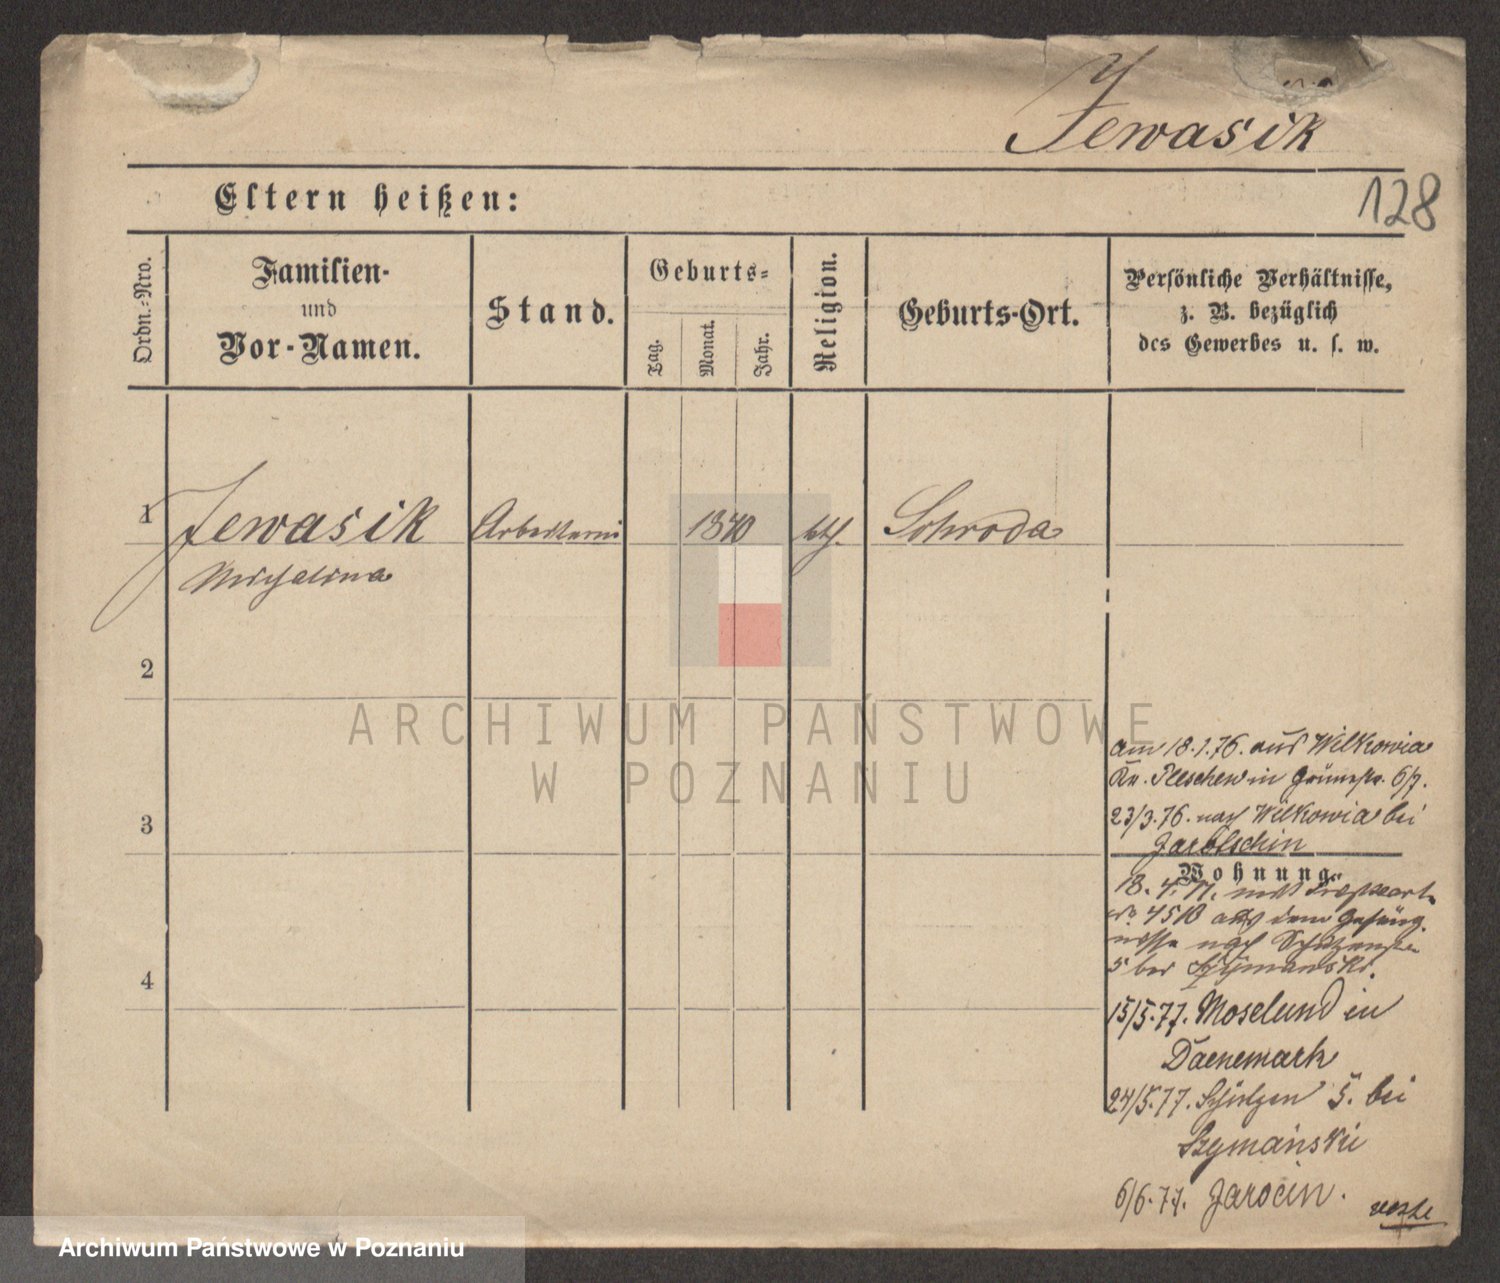 Jewasik
128
Eltern heißen:
Ordn.-Nro.
Familien-
und
Vor-Namen.
Stand.
Geburts-
Tag.
Monat.
Jahr.
Religion.
Geburts-Ort.
Persönliche Verhältnisse,
z. B. bezüglich
des Gewerbes u. s. w.
1 Jewasik Arbeiterin 1840 kth. Schroda
Michalina
2
3
4
am 18.1.76. aus Wilkowia
Kr. Pleschen in Grünestr. 6/7.
23/3.76. nach Wilkowia bei
Jarotschin
Wohnung.
18. 4. 77. mit
No 4518 aus dem Gefäng
nisse nach Schützenstr
5 bei Szymanski.
15/5.77. Moselund in
Daenemark
24/5.77. Schützen 5. bei
Szymański
6/6.77. Jarocin.
ARCHIWUM PAŃSTWOWE
W POZNANIU
Archiwum Państwowe w Poznaniu